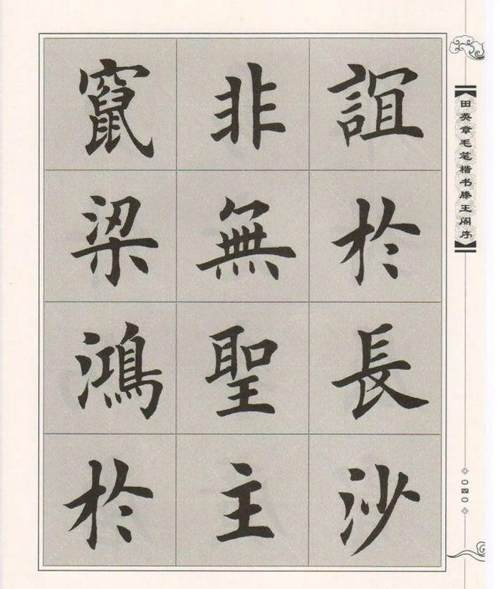 誼於長沙
非無聖主
竄梁鴻於
【田英章毛笔楷书滕王阁序】
〇四〇